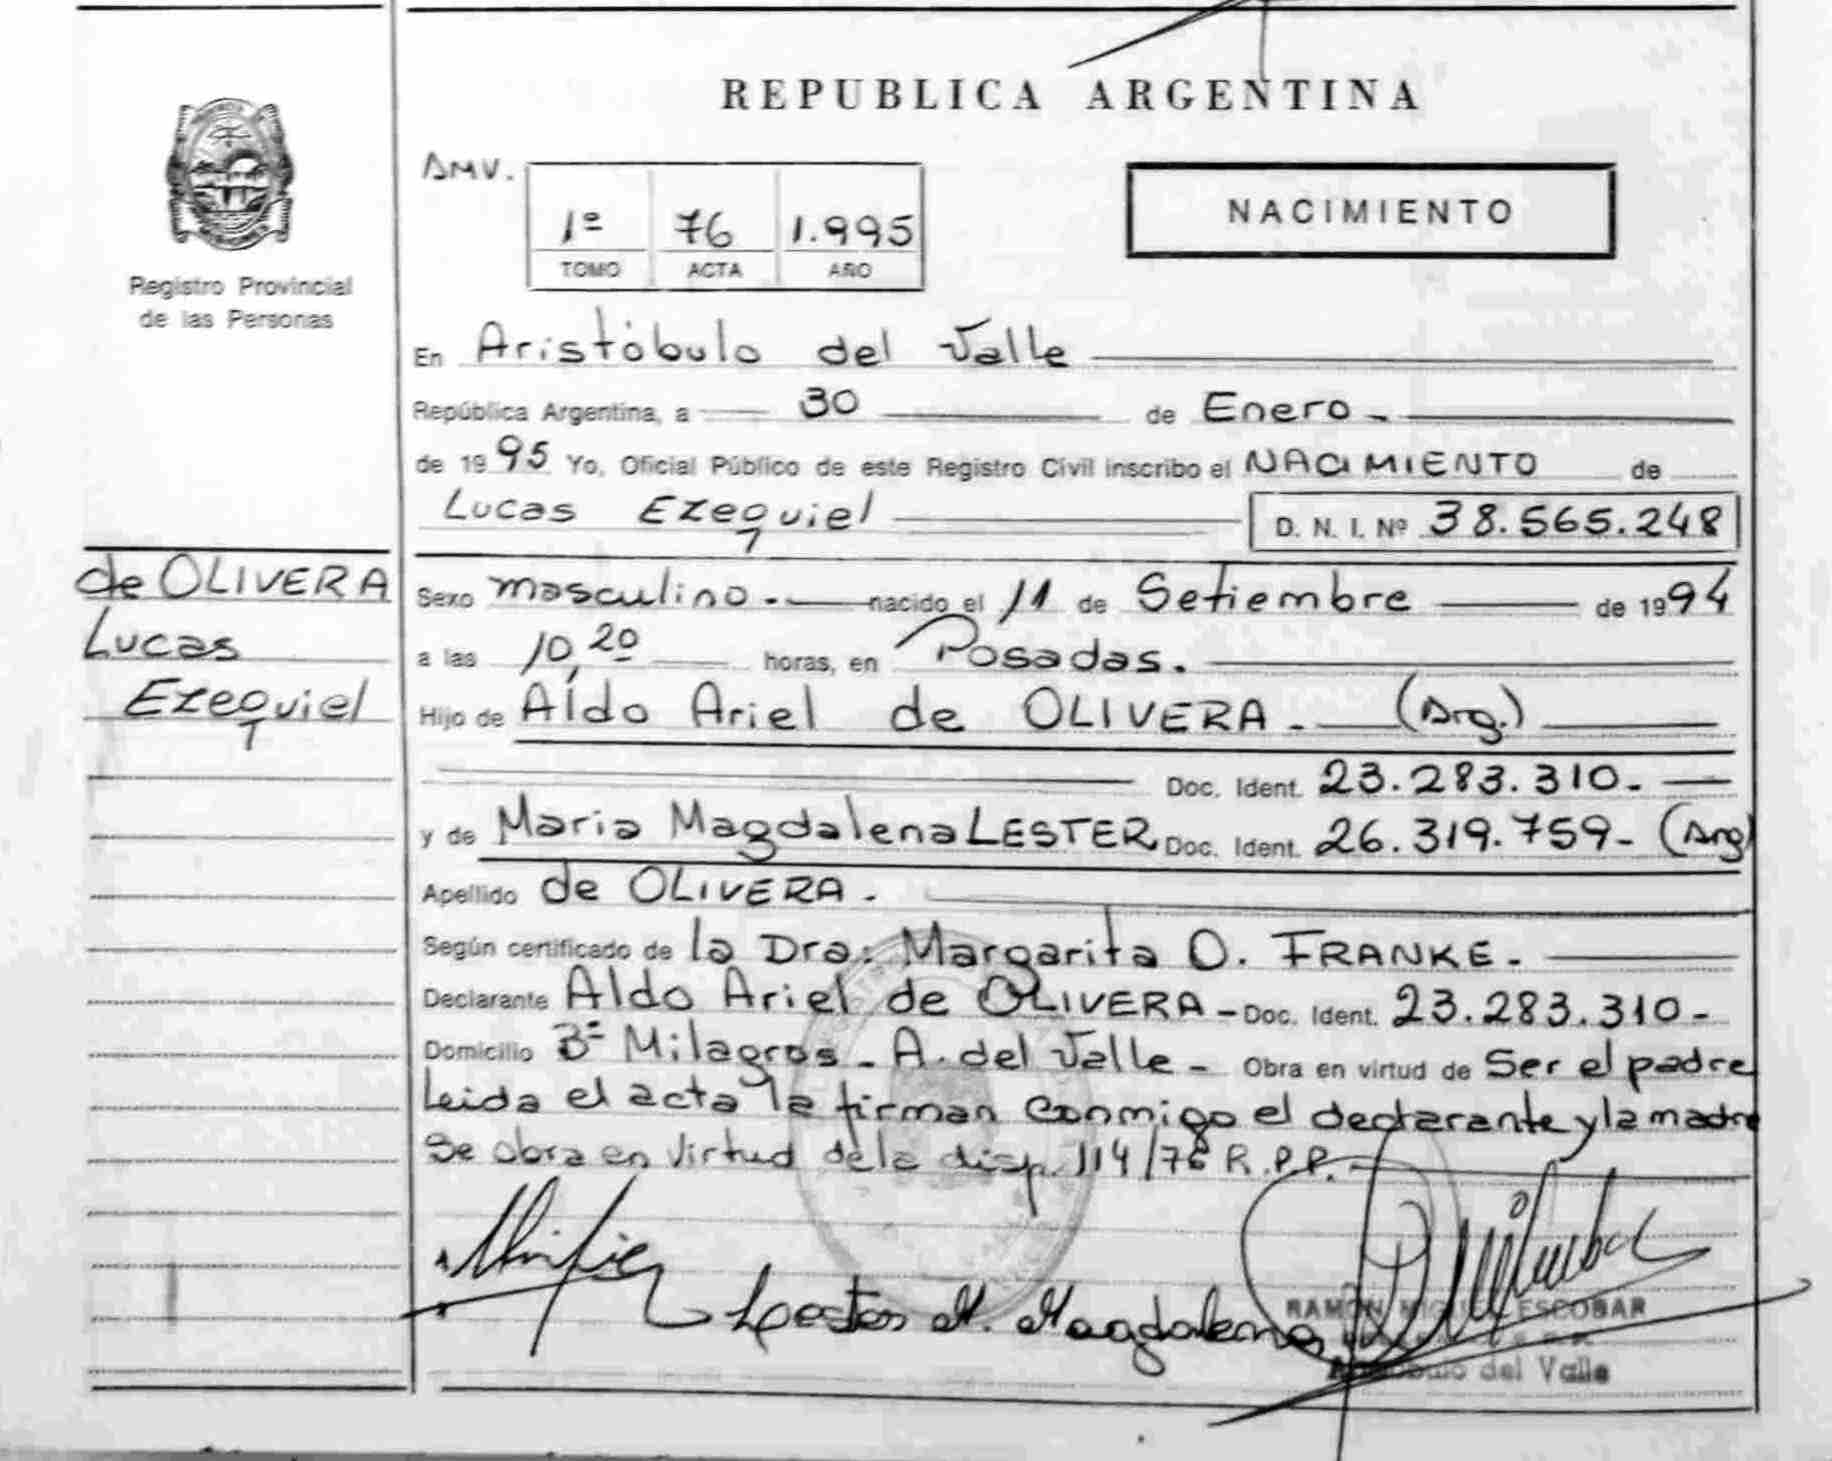 REPUBLICA ARGENTINA
Registro Provincial
de las Personas
AMV.
1º 76 1.995
TOMO ACTA AÑO
NACIMIENTO
En Aristóbulo del Valle
República Argentina, a 30 de Enero -
de 1995 Yo, Oficial Público de este Registro Civil inscribo el NACIMIENTO de
Lucas Ezequiel D. N. I. Nº 38.565.248
de OLIVERA
Lucas
Ezequiel
Sexo masculino. - nacido el 11 de Setiembre de 1994
a las 10,20 horas, en Posadas.
Hijo de Aldo Ariel de OLIVERA - (Arg.)
Doc. Ident. 23.283.310-
y de Maria Magdalena LESTER Doc. Ident. 26.319.759- (Arg)
Apellido de OLIVERA -
Según certificado de la Dra: Margarita O. FRANKE -
Declarante Aldo Ariel de OLIVERA - Doc. Ident. 23.283.310-
Domicilio Bº Milagros - A. del Valle - Obra en virtud de Ser el padre
Leida el acta la firman conmigo el declarante y la madre
Se obra en virtud de la disp. 114/76 R.P.P. -
Lester M. Magdalena
RAMON MIGUEL ESCOBAR
Aristobulo del Valle